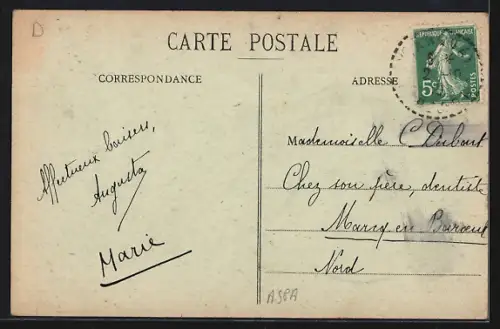 D
CARTE POSTALE
CORRESPONDANCE
ADRESSE
REPUBLIQUE FRANÇAISE
5c
POSTES
Affectueux baisers,
Augusta
Marie
Mademoiselle C Dubont
Chez son père, dentiste
Marcq en Baroeul
Nord
A98A